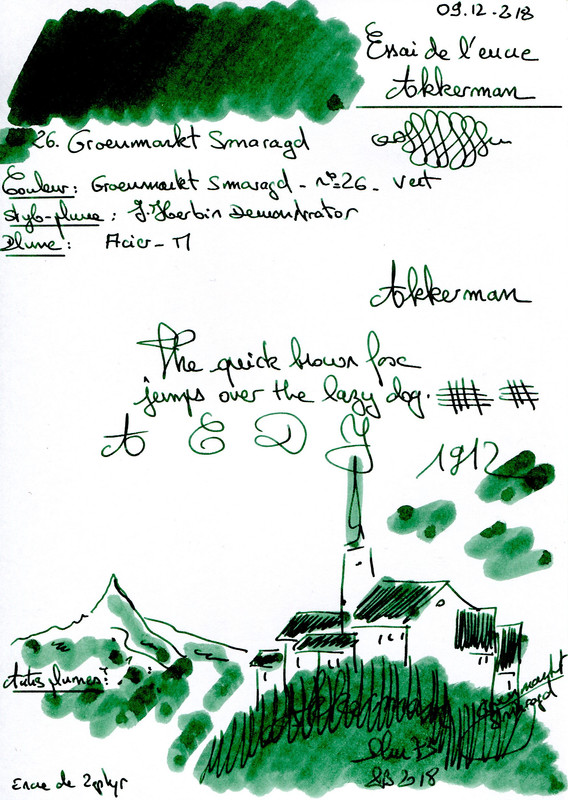 09.12.2018
Essai de l'encre
Akkerman
26. Groenmarkt Smaragd
Couleur: Groenmarkt Smaragd - n°26 - vert
Stylo-plume: J. Herbin Demonstrator
Plume: Acier - M
Akkerman
The quick brown fox
jumps over the lazy dog.
A E D Y
1912
Autres plumes?
Groenmarkt
Smaragd
SB 2018
Encre de Zephyr